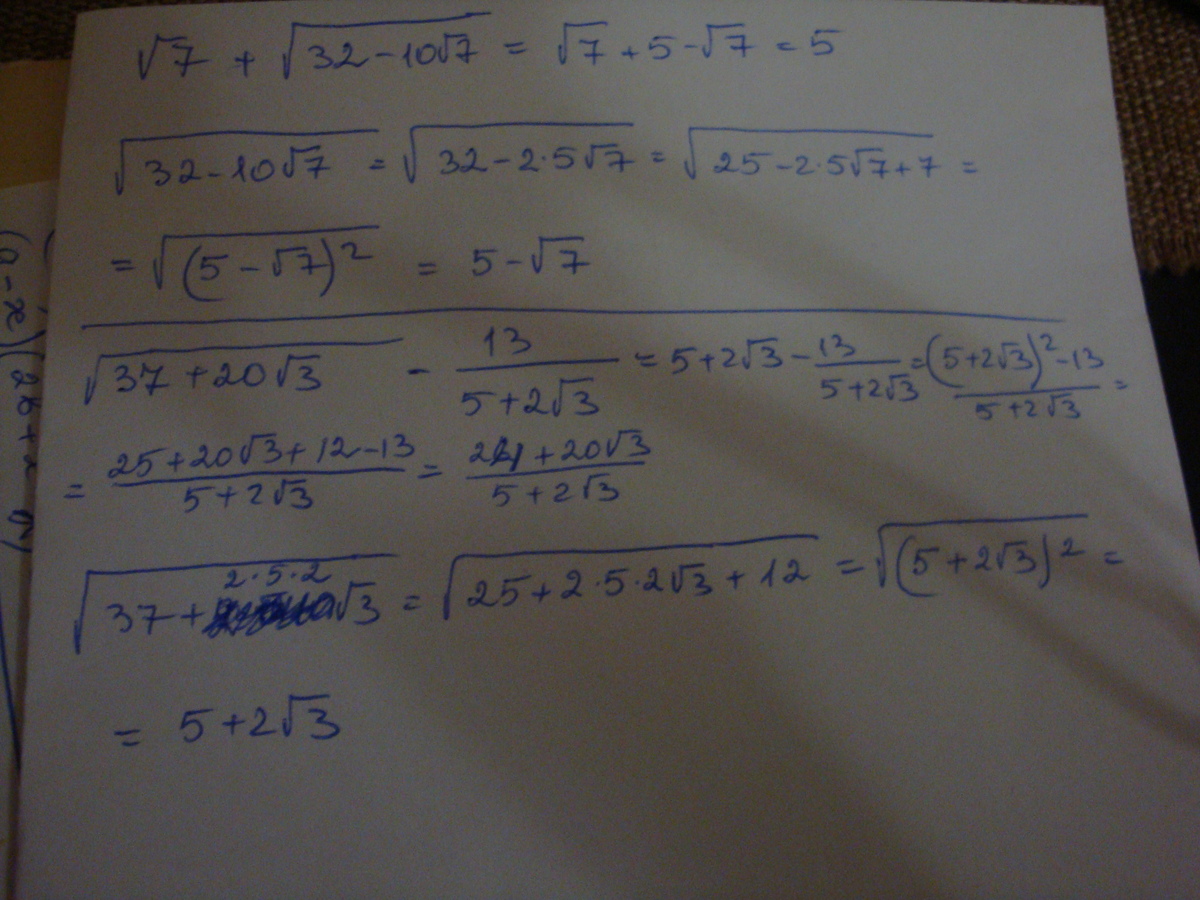 √7 + √(32-10√7) = √7 + 5 - √7 = 5
√(32-10√7) = √(32-2·5√7) = √(25-2·5√7+7) =
= √((5-√7)²) = 5-√7
√(37+20√3) - 13/(5+2√3) = 5+2√3 - 13/(5+2√3) = ((5+2√3)²-13)/(5+2√3) =
= (25+20√3+12-13)/(5+2√3) = (24+20√3)/(5+2√3)
√(37+2·5·2√3) = √(25+2·5·2√3+12) = √((5+2√3)²) =
= 5+2√3